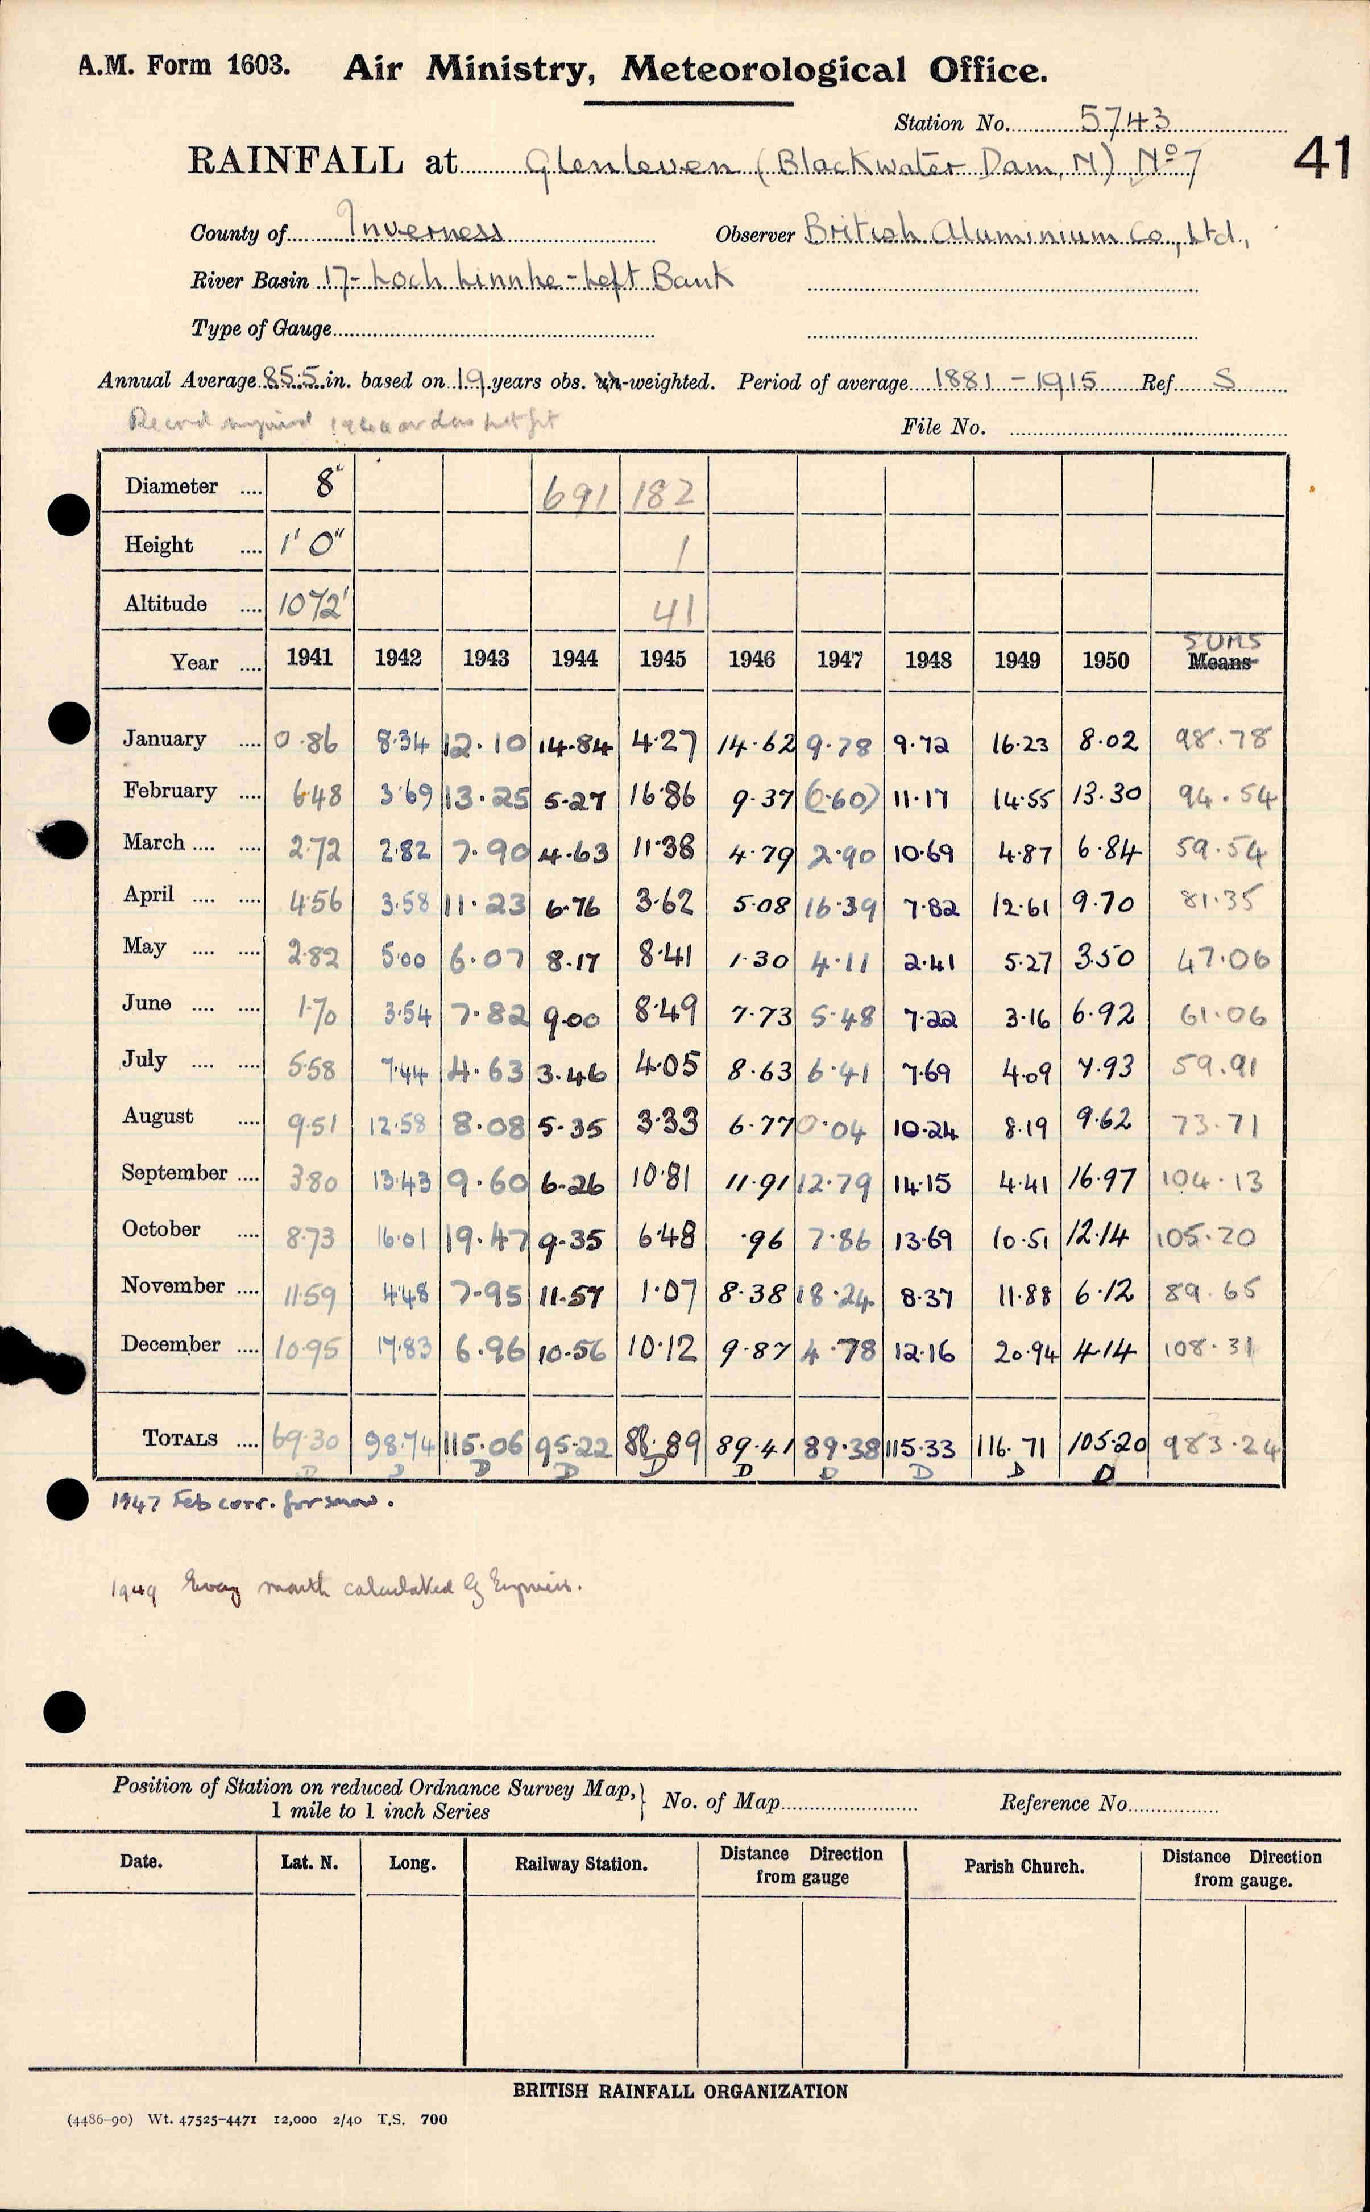 A.M. Form 1603. Air Ministry, Meteorological Office.
Station No. 5743
RAINFALL at Glenleven (Blackwater Dam, N) No 7 41
County of Inverness Observer British Aluminium Co., Ltd.,
River Basin 17 - Loch Linnhe - Left Bank
Type of Gauge
Annual Average 85.5 in. based on 19 years obs. un-weighted. Period of average 1881 - 1915 Ref S
Record
File No.
Diameter .... 8" 691 182
Height .... 1' 0" 1
Altitude .... 1072' 41
SUMS
Year .... 1941 1942 1943 1944 1945 1946 1947 1948 1949 1950 Means
January .... 0.86 8.34 12.10 14.84 4.27 14.62 9.78 9.72 16.23 8.02 98.78
February .... 6.48 3.69 13.25 5.27 16.86 9.37 (0.60) 11.17 14.55 13.30 94.54
March .... .... 2.72 2.82 7.90 4.63 11.38 4.79 2.90 10.69 4.87 6.84 59.54
April .... .... 4.56 3.58 11.23 6.76 3.62 5.08 16.39 7.82 12.61 9.70 81.35
May .... .... 2.82 5.00 6.07 8.17 8.41 1.30 4.11 2.41 5.27 3.50 47.06
June .... .... 1.70 3.54 7.82 9.00 8.49 7.73 5.48 7.22 3.16 6.92 61.06
July .... .... 5.58 7.44 4.63 3.46 4.05 8.63 6.41 7.69 4.09 7.93 59.91
August .... 9.51 12.58 8.08 5.35 3.33 6.77 0.04 10.24 8.19 9.62 73.71
September .... 3.80 13.43 9.60 6.26 10.81 11.91 12.79 14.15 4.41 16.97 104.13
October .... 8.73 16.01 19.47 9.35 6.48 .96 7.86 13.69 10.51 12.14 105.20
November .... 11.59 4.48 7.95 11.57 1.07 8.38 18.24 8.37 11.88 6.12 89.65
December .... 10.95 17.83 6.96 10.56 10.12 9.87 4.78 12.16 20.94 4.14 108.31
TOTALS .... 69.30 98.74 115.06 95.22 88.89 89.41 89.38 115.33 116.71 105.20 983.24
D D D D D D D D D D
1947 Feb corr. for snow.
1949 Every month calculated by
Position of Station on reduced Ordnance Survey Map,} No. of Map Reference No.
1 mile to 1 inch Series
Date. Lat. N. Long. Railway Station. Distance Direction from gauge Parish Church. Distance Direction from gauge.
BRITISH RAINFALL ORGANIZATION
(4486-90) Wt. 47525-4471 12,000 2/40 T.S. 700